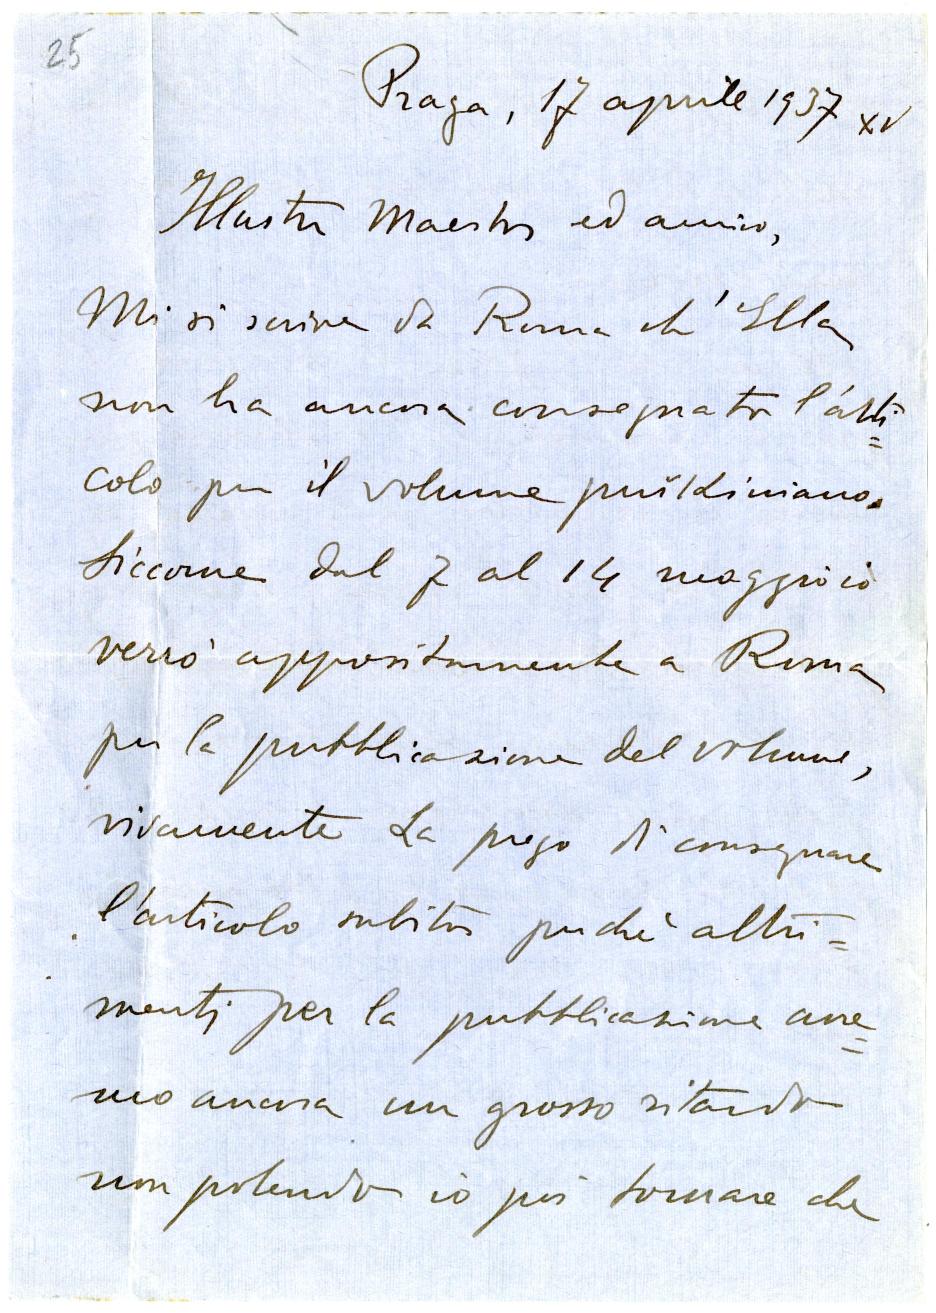 25
Praga, 17 aprile 1937 XV
Illustre Maestro ed amico,
Mi si scrive da Roma ch' Ella
non ha ancora consegnato l'arti=
colo per il volume puškiniano.
Siccome dal 7 al 14 maggio io
verrò appositamente a Roma
per la pubblicazione del volume,
vivamente La prego di consegnare
l'articolo subito perchè altri=
menti per la pubblicazione avre=
mo ancora un grosso ritardo
non potendo io poi tornare che